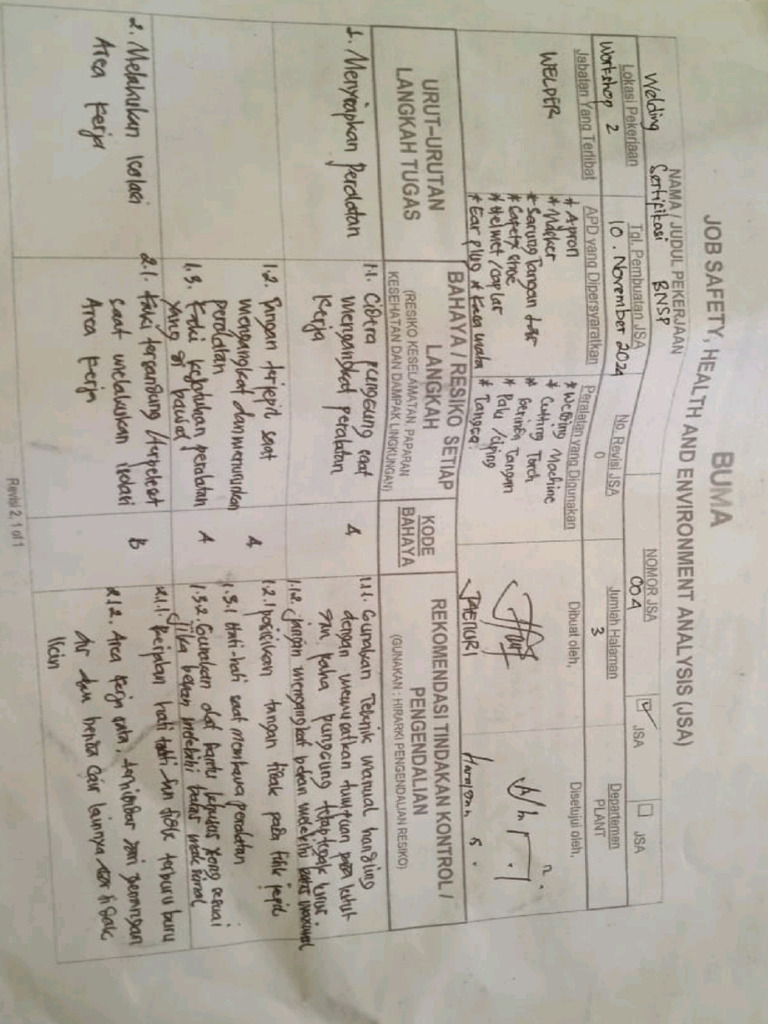 BUMA
JOB SAFETY, HEALTH AND ENVIRONMENT ANALYSIS (JSA)
NAMA / JUDUL PEKERJAAN
Welding Sertifikasi BNSP
NOMOR JSA
004
JSA
JSA
Lokasi Pekerjaan
Workshop 2
Tgl. Pembuatan JSA
10. November 2024
No Revisi JSA
0
Jumlah Halaman
3
Departemen
PLANT
Jabatan Yang Terlibat
WELDER
APD yang Dipersyaratkan
* Apron
* Masker
* Sarung Tangan
* Safety shoe
* Helmet / cap las
* Ear plug * Kaca mata
Peralatan yang Digunakan
* Welding Machine
* Cutting Torch
* Gerinda Tangan
* Palu
* Tangga
Dibuat oleh,
JAENURI
Disetujui oleh,
URUT-URUTAN
LANGKAH TUGAS
BAHAYA / RESIKO SETIAP
LANGKAH
(RESIKO KESELAMATAN, PAPARAN
KESEHATAN DAN DAMPAK LINGKUNGAN)
KODE
BAHAYA
REKOMENDASI TINDAKAN KONTROL /
PENGENDALIAN
(GUNAKAN : HIRARKI PENGENDALIAN RESIKO)
1. Menyiapkan peralatan
1.1. Cidera punggung saat
mengangkat peralatan
kerja
A
1.1.1. Gunakan Teknik manual handling
dengan menempatkan tumpuan pada lutut
dan paha punggung tetap tegak lurus.
1.1.2. jangan mengangkat beban melebihi batas maximal
1.2. Tangan terjepit saat
mengangkat dan menurunkan
peralatan
A
1.2.1 posisikan tangan tidak pada titik jepit
1.3. Kaki kejatuhan peralatan
yang di bawa
A
1.3.1 Hati-hati saat membawa peralatan
1.3.2. Gunakan alat bantu yang sesuai
Jika beban melebihi batas maksimal
2. Melakukan isolasi
Area kerja
2.1. Kaki tersandung / terpeleset
saat melakukan isolasi
Area kerja
B
2.1.1. Berjalan hati hati dan tidak terburu buru
2.1.2. Area kerja rata, terhindar dari genangan
air dan benda cair lainnya dan tidak
licin
Revisi 2, 1 of 1